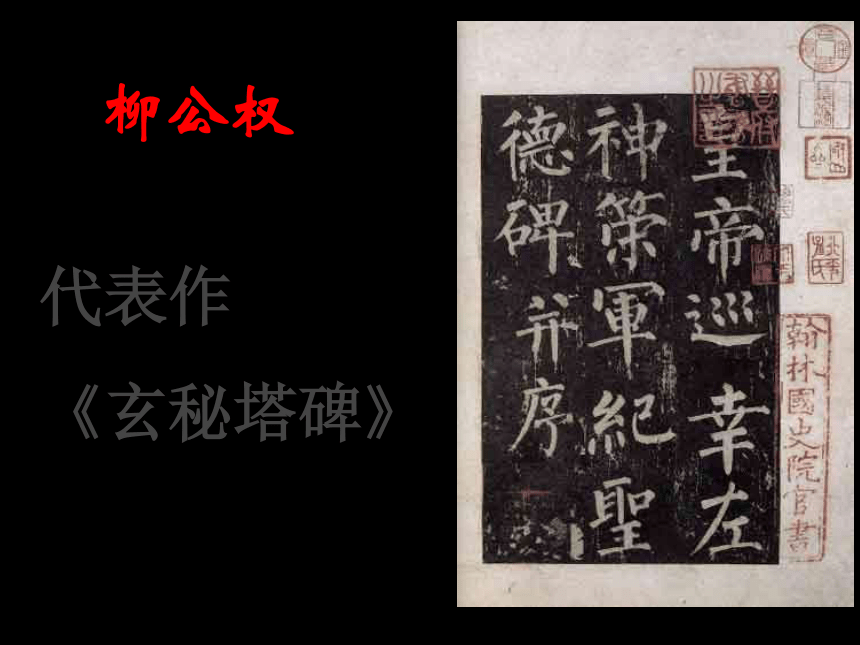 柳公权
代表作
《玄秘塔碑》
皇帝巡幸左
神策軍紀聖
德碑并序
翰林國史院官書